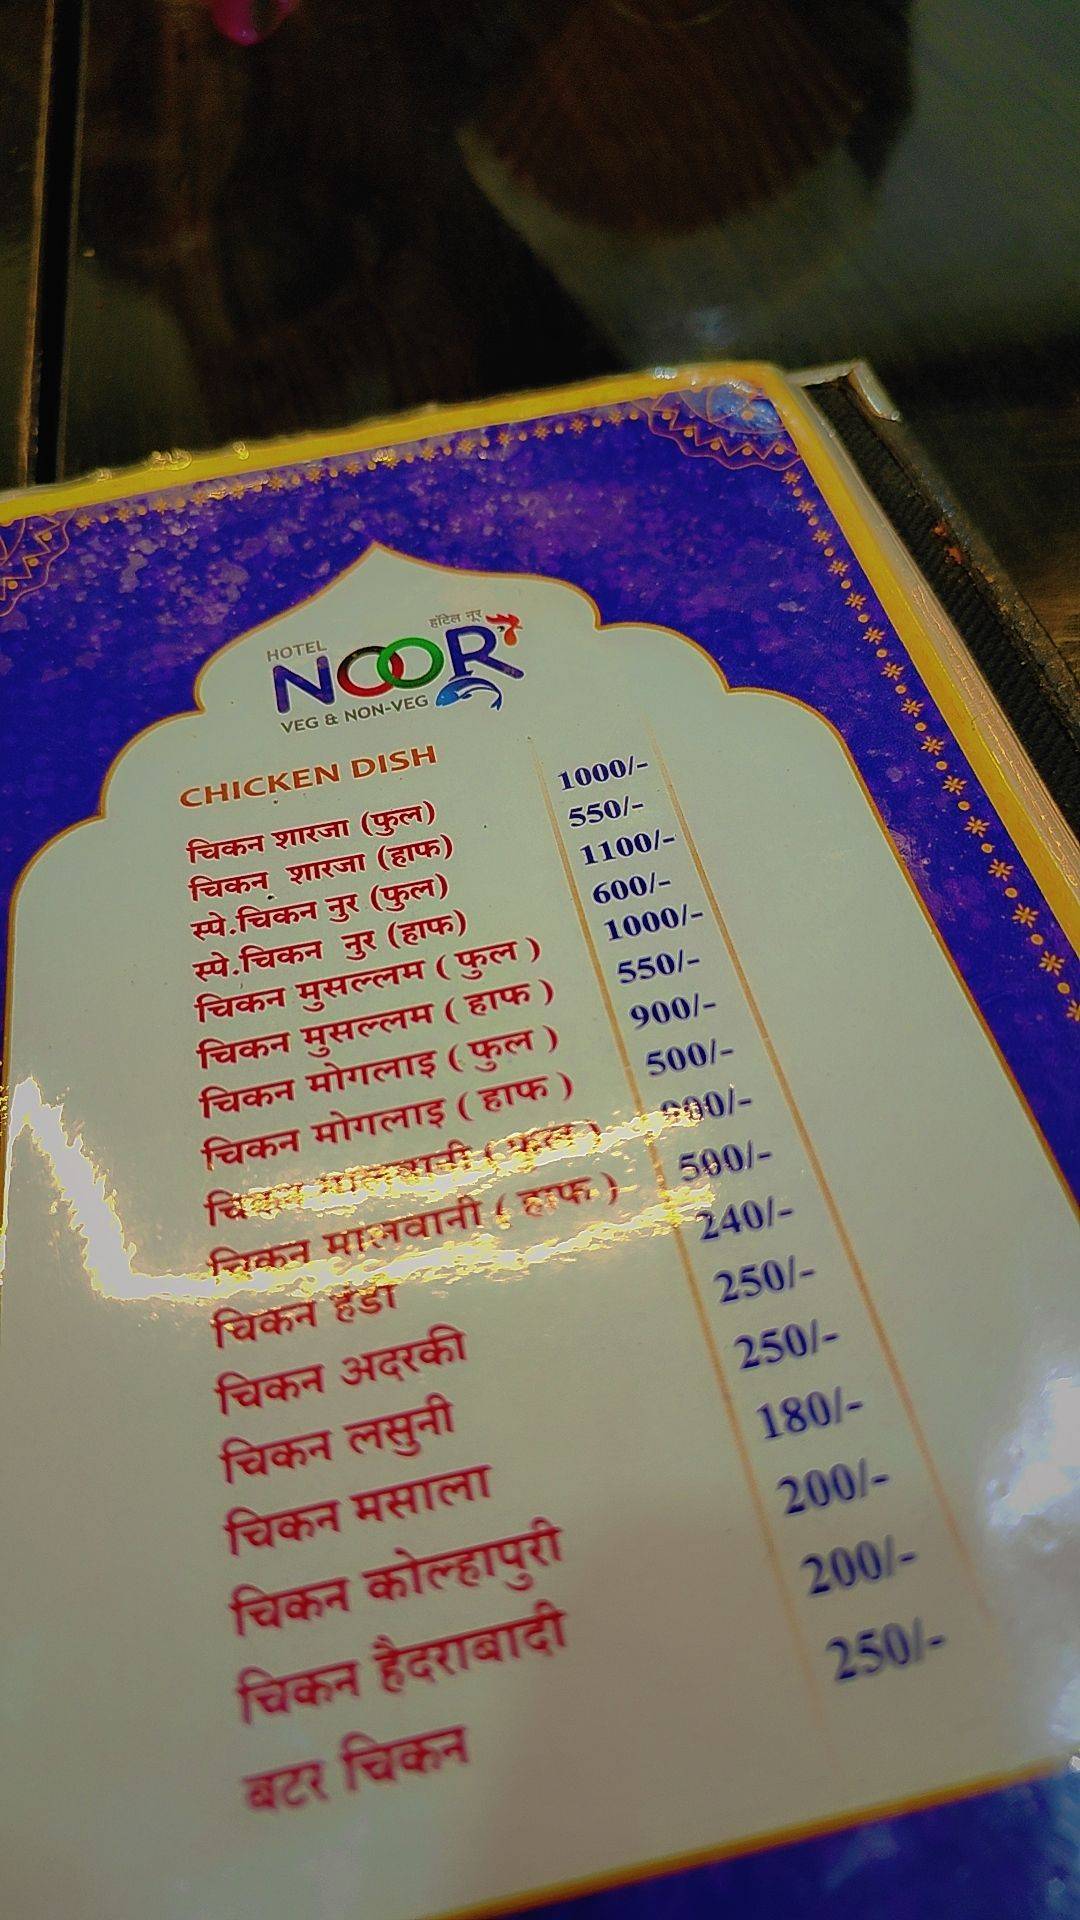 HOTEL
हॉटेल नूर
NOOR
VEG & NON-VEG
CHICKEN DISH
चिकन शारजा (फुल) 1000/-
चिकन शारजा (हाफ) 550/-
स्पे.चिकन नुर (फुल) 1100/-
स्पे.चिकन नुर (हाफ) 600/-
चिकन मुसल्लम ( फुल ) 1000/-
चिकन मुसल्लम ( हाफ ) 550/-
चिकन मोगलाइ ( फुल ) 900/-
चिकन मोगलाइ ( हाफ ) 500/-
चिकन मालवानी ( फुल ) 900/-
चिकन मालवानी ( हाफ ) 500/-
चिकन हंडी 240/-
चिकन अदरकी 250/-
चिकन लसुनी 250/-
चिकन मसाला 180/-
चिकन कोल्हापुरी 200/-
चिकन हैदराबादी 200/-
बटर चिकन 250/-